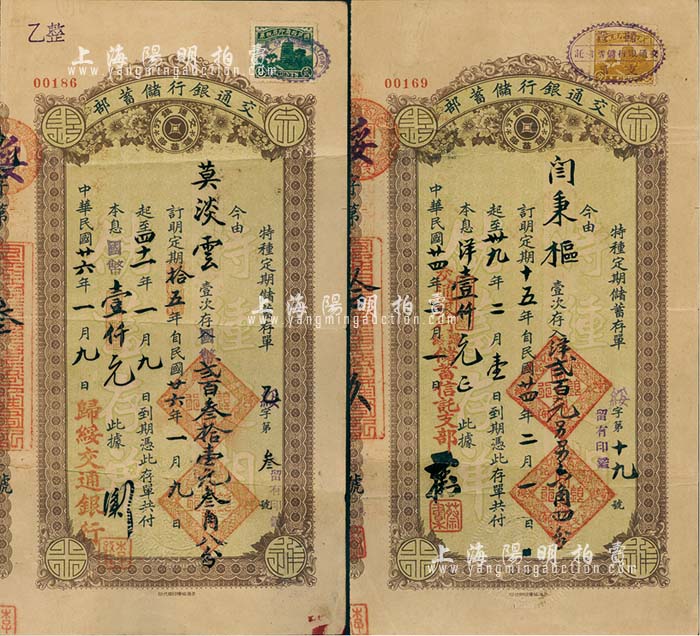 上海陽明拍賣
www.yangmingauction.com
乙整
00186
交通銀行儲蓄部
特種定期儲蓄存單
字第叁號
留有印鑑
今由
莫淡雲
壹次存國幣貳百叁拾壹元叁角八分
訂明定期拾五年自民國廿六年一月九日
起至四十一年一月九日到期憑此存單共付
本息國幣壹仟元
此據
中華民國廿六年一月九日
歸綏交通銀行
00169
交通銀行儲蓄部
特種定期儲蓄存單
綏字第十九號
留有印鑑
今由
閆秉樞
壹次存入洋貳百元另另六角四分
訂明定期十五年自民國廿四年二月一日
起至卅九年二月壹日到期憑此存單共付
本息洋壹仟元正
此據
中華民國廿四年二月一日
信託支部
上海陽明拍賣
www.yangmingauction.com
上海陽明拍賣
www.yangmingauction.com